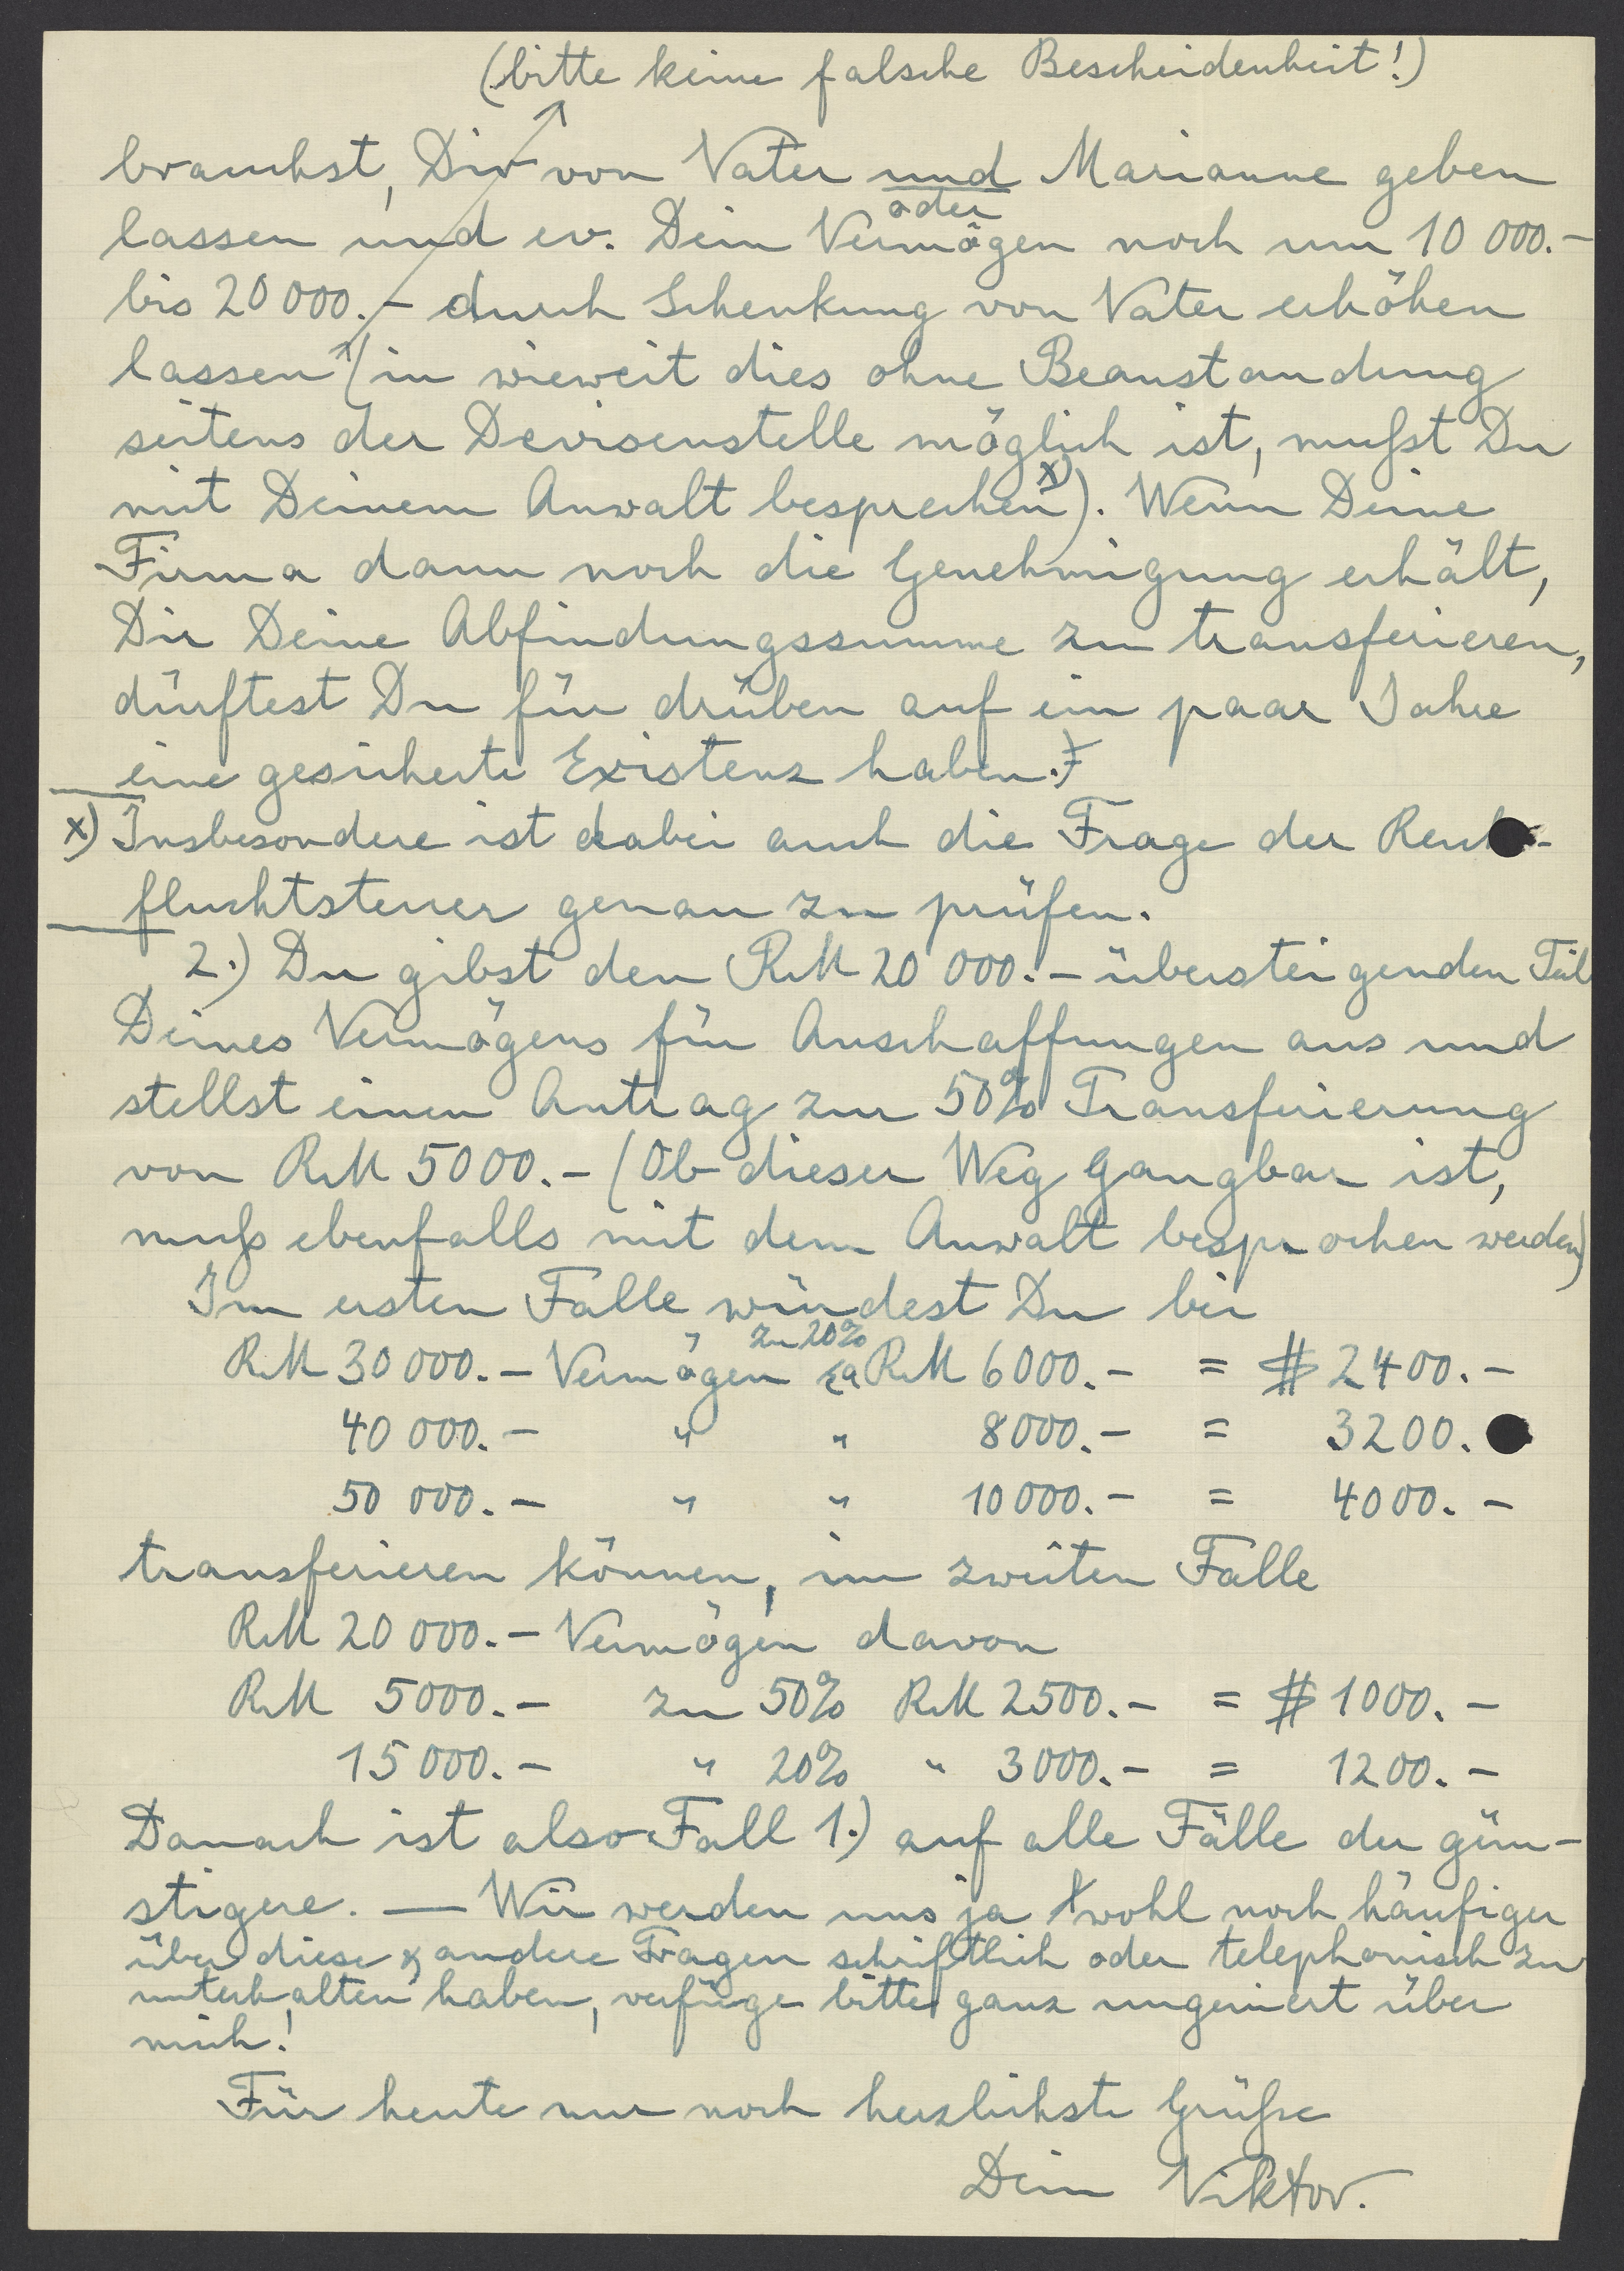 (bitte keine falsche Bescheidenheit!)
brauchst, Dir von Vater und Marianne geben
oder
lassen und ev. Dein Vermögen noch um 10 000.–
bis 20 000.– durch Schenkung von Vater erhöhen
lassen (in wieweit dies ohne Beanstandung
seitens der Devisenstelle möglich ist, mußt Du
mit Deinem Anwalt besprechen x)). Wenn Deine
Firma dann noch die Genehmigung erhält,
Dir Deine Abfindungssumme zu transferieren,
dürftest Du für drüben auf ein paar Jahre
eine gesicherte Existenz haben.
x) Insbesondere ist dabei auch die Frage der Reichs-
fluchtsteuer genau zu prüfen.
2.) Du gibst den RM 20 000.– übersteigenden Teil
Deines Vermögens für Anschaffungen aus und
stellst einen Antrag zur 50% Transferierung
von RM 5000.– (Ob dieser Weg gangbar ist,
muß ebenfalls mit dem Anwalt besprochen werden)
Im ersten Falle würdest Du bei
zu 20%
RM 30 000.– Vermögen ca RM 6000.– = $ 2400.–
40 000.– " " 8000.– = 3200.
50 000.– " " 10 000.– = 4000.–
transferieren können, im zweiten Falle
RM 20 000.– Vermögen davon
RM 5000.– zu 50% RM 2500.– = $ 1000.–
15 000.– " 20% " 3000.– = 1200.–
Danach ist also Fall 1.) auf alle Fälle der gün-
stigere. — Wir werden uns ja wohl noch häufiger
über diese & andere Fragen schriftlich oder telephonisch zu
unterhalten haben, verfüge bitte ganz ungeniert über
mich!
Für heute nur noch herzlichste Grüße
Dein Viktor.